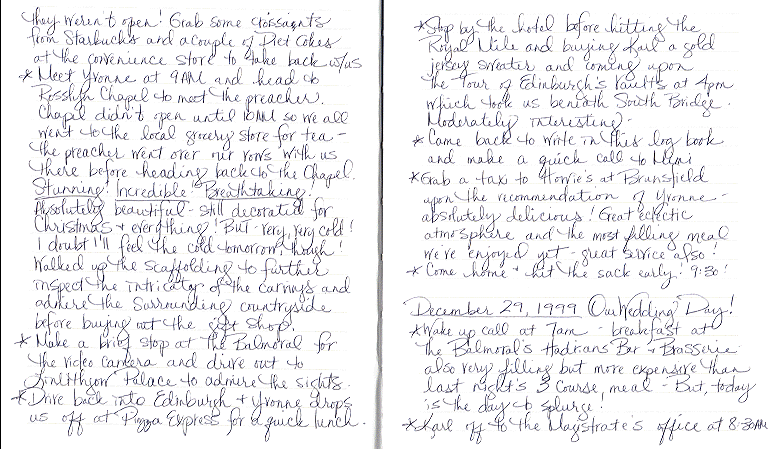 they weren't open! Grab some croissants
from Starbucks and a couple of Diet Cokes
at the convenience store to take back w/us
* Meet Yvonne at 9AM and head to
Rosslyn Chapel to meet the preacher.
Chapel didn't open until 10AM so we all
went to the local grocery store for tea -
the preacher went over our vows with us
there before heading back to the Chapel.
Stunning! Incredible! Breathtaking!
Absolutely beautiful - still decorated for
Christmas & everything! But - very, very cold!
I doubt I'll feel the cold tomorrow, though!
Walked up the scaffolding to further
inspect the intricacy of the carvings and
admire the surrounding countryside
before buying out the gift shop.
* Make a brief stop at the Balmoral for
the video camera and drive out to
Linlithgow Palace to admire the sights.
* Drive back into Edinburgh & Yvonne drops
us off at Pizza Express for a quick lunch.
* Stop by the hotel before hitting the
Royal Mile and buying Karl a gold
jersey sweater and coming upon
the Tour of Edinburgh's Vaults at 4pm
which took us beneath South Bridge.
Moderately interesting.
* Came back to write in this log book
and make a quick call to Mimi
* Grab a taxi to Howie's at Brunsfield
upon the recommendation of Yvonne -
absolutely delicious! Great eclectic
atmosphere and the most filling meal
we've enjoyed yet - great service also!
* Come home & hit the sack early! 9:30!
December 29, 1999 Our Wedding Day!
* Wake up call at 7am - breakfast at
the Balmoral's Hadrians Bar & Brasserie
also very filling but more expensive than
last night's 3 course meal - But, today
is the day to splurge!
* Karl off to the Magstrate's office at 8:30AM